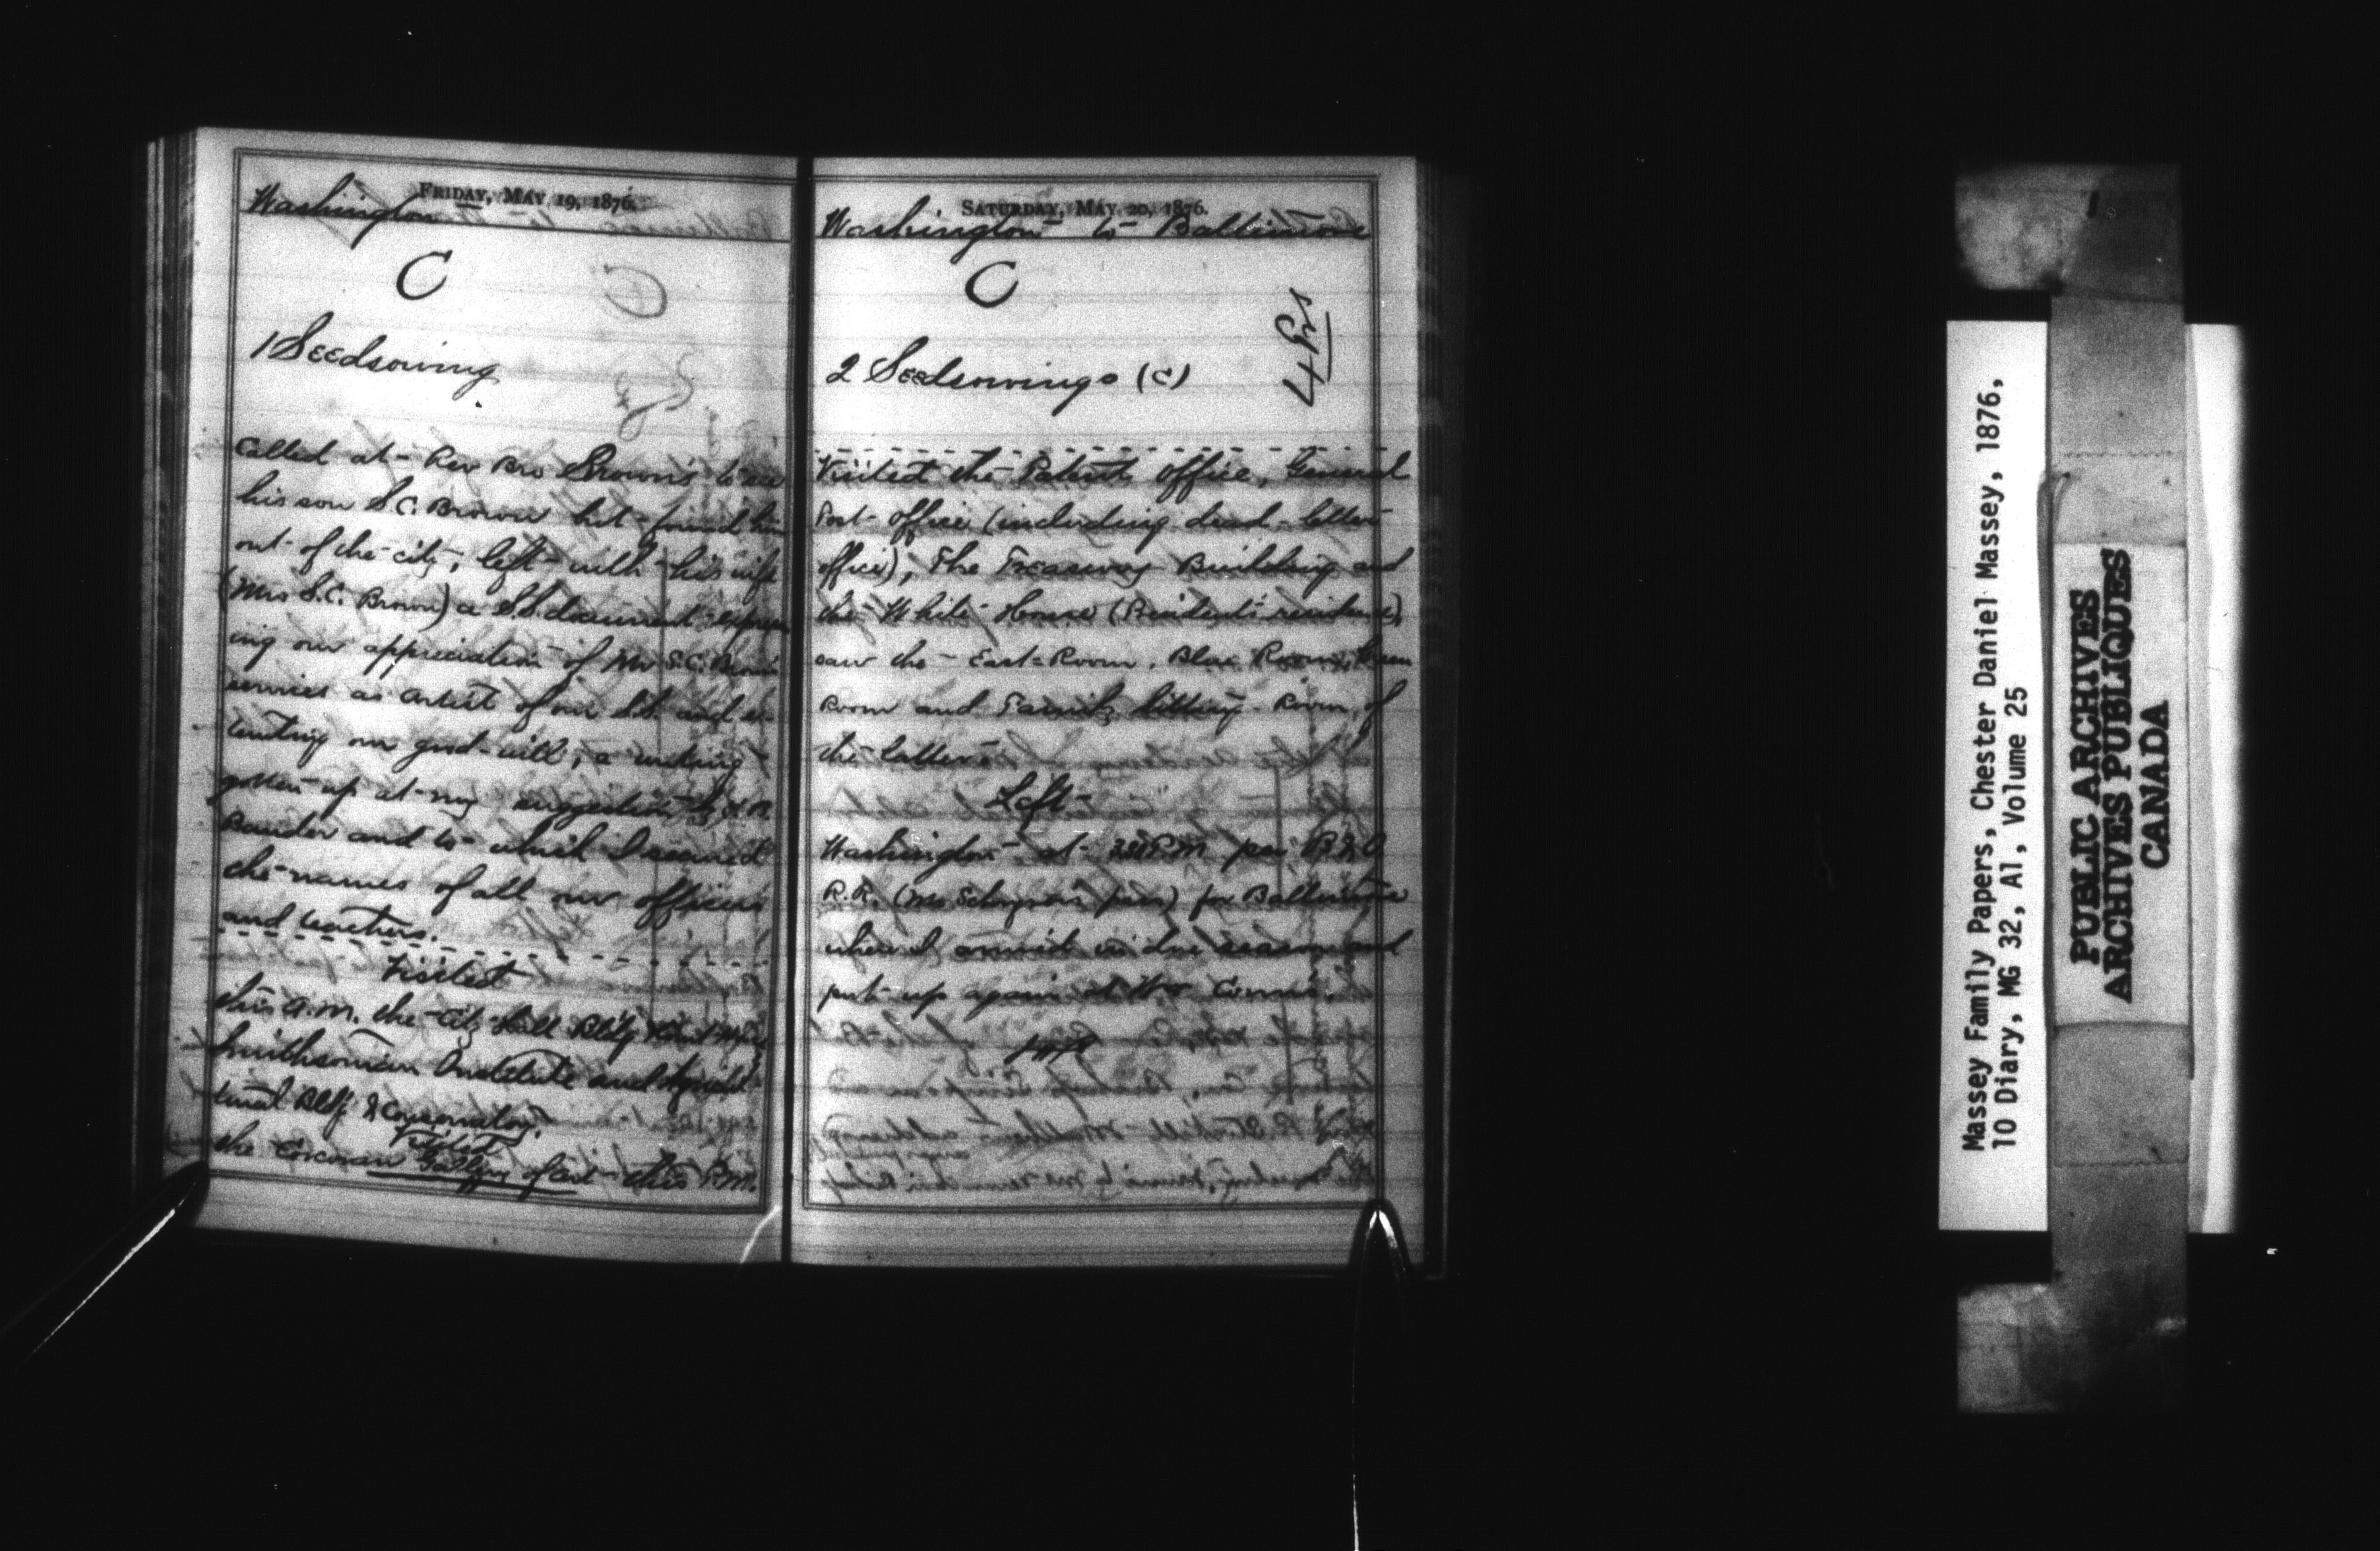 FRIDAY, MAY 19, 1876.
Washington
C
1 Seedsowing
Called at Rev Bro Brown's to see
his son S.C. Brown but found him
out of the city, left with his wife
(Mrs S.C. Brown) a S.S. document express
ing our appreciation of Mr S.C. Brown's
services as artist of our S.S. and
our good-will, a writing
gotten up at my suggestion by
and to which I secured
the names of all our officers
and teachers.
Visited
this A.M. the City Hall Bldg
Smithsonian Institute and Agricul-
tural Bldg & Conservatory.
Visited
the Corcoran Gallery of art this P.M.
SATURDAY, MAY 20, 1876.
Washington to Baltimore
C
4 Prs
2 Seedsowings (C)
Visited the Patent office, General
Post office (including dead-letter
office), The Treasury Building and
the White House (President's residence)
saw the East-Room, Blue Room, Green
Room and Family Sitting-Room, of
the latter.
Left
Washington at P.M. per B & O
R.R. for Baltimore
where I arrived in due season and
put up again at
Massey Family Papers, Chester Daniel Massey, 1876,
10 Diary, MG 32, A1, Volume 25
PUBLIC ARCHIVES
ARCHIVES PUBLIQUES
CANADA